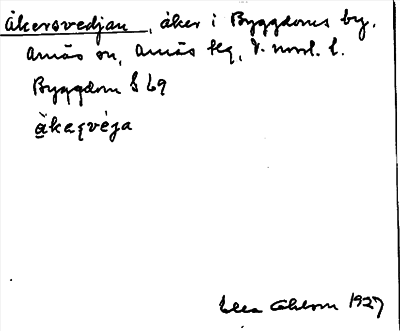 Åkersvedjan, åker i Byggdoms by.
Arnäs sn, Arnäs tg, V. norrl. l.
Byggdom § 69
åkaʂvèja
Ella Ohlson 1927